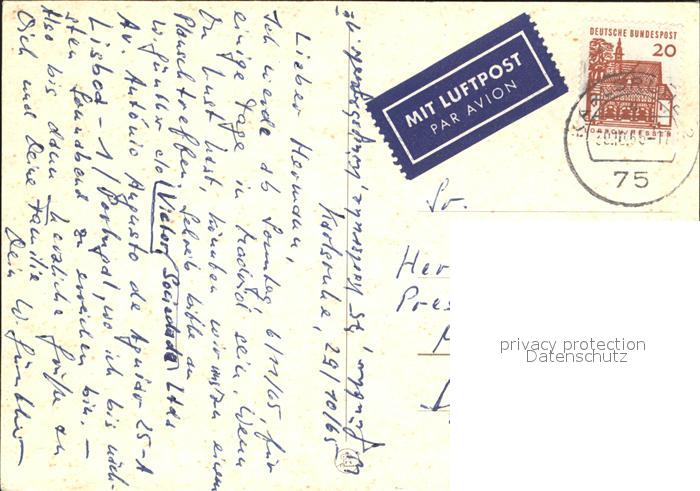 W. Günther, 75 Karlsruhe,
Karlsruhe, 29/10/65
Lieber Hermann,
Ich werde ab Sonntag, 6/11/65, für
einige Tage in Madrid sein. Wenn
Du Lust hast, könnten wir uns zu einem
Plauschtreffen. Schreib bitte an
W. Günther c/o Victor Sociedade Ltda
Av. António Augusto de Aguiar 25-1
Lisboa-1/Portugal, wo ich bis näch-
sten Sonnabend zu erreichen bin. –
Also bis dann herzliche Grüße an
Dich und Deine Familie
Dein W. Günther
MIT LUFTPOST
PAR AVION
DEUTSCHE BUNDESPOST
20
LORSCH/HESSEN
75
Sr.
Her
Pres
privacy protection
Datenschutz